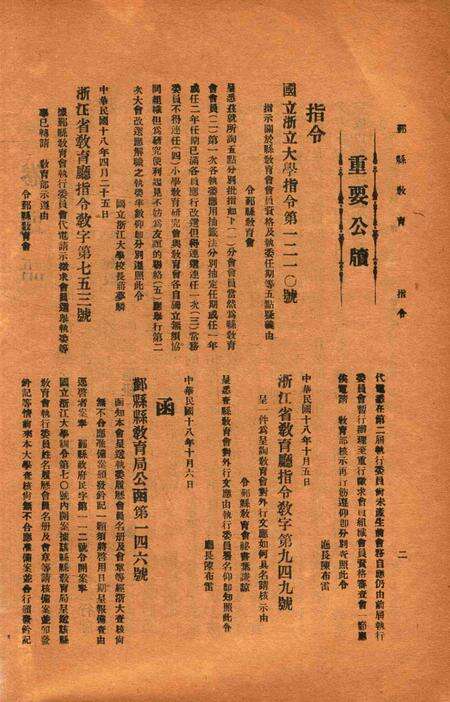 鄞縣教育　指令　二
重要公牘
指令
國立浙江大學指令第一二一〇號
指示關於縣教育會會員資格及執委任期等五點疑義由
令鄞縣教育會
呈悉茲就所詢五點分別批指如下（一）分會會員當然爲縣教育
會會員（二）第一次各執委應用抽籤法分別抽定任期或任一年
或任二年任期已滿各員應行改選但得連選連任一次（三）常務
委員不得連任（四）小學教育研究會與教育會各自獨立無須協
同組織但爲研究便利起見不妨爲友誼的聯絡（五）應舉行第二
次大會改選應解職之執委半數仰即分別遵照此令
國立浙江大學校長蔣夢麟
中華民國十八年四月二十五日
浙江省教育廳指令教字第七五三號
據鄞縣教育會執行委員會代電請示徵求會員選舉執委等
事已轉請　教育部示遵由
令鄞縣教育會
代電悉在第二屆執行委員尚未產生前會務自應仍由前屆執行
委員會暫行辦理至重行徵求會員組織會員資格審查會一節應
俟電請　教育部核示再行飭遵仰即分別查照此令
廳長陳布雷
中華民國十八年十月五日
浙江省教育廳指令教字第九四九號
呈一件爲呈詢教育會對外行文應如何具名請核示由
令鄞縣教育會祕書葉謙諒
呈悉查縣教育會對外行文應由執行委員署名仰即知照此令
廳長陳布雷
中華民國十八年十月六日
函
鄞縣縣教育局公函第一四六號
函知本會屆選執委履歷會員名册及會章等經浙大查核尚
無不合應准備案頒發鈐記一顆須將啓用日期呈報備查由
逕啓者案奉　縣政府民字第一一二號令開案奉
國立浙江大學令第七〇號內開案據該縣縣教育局呈送該縣
教育會執行委員姓名履歷會員名册及會章等請核備案並頒發
鈐記等情前來本大學查核尚無不合應准備案並合行頒發鈐記